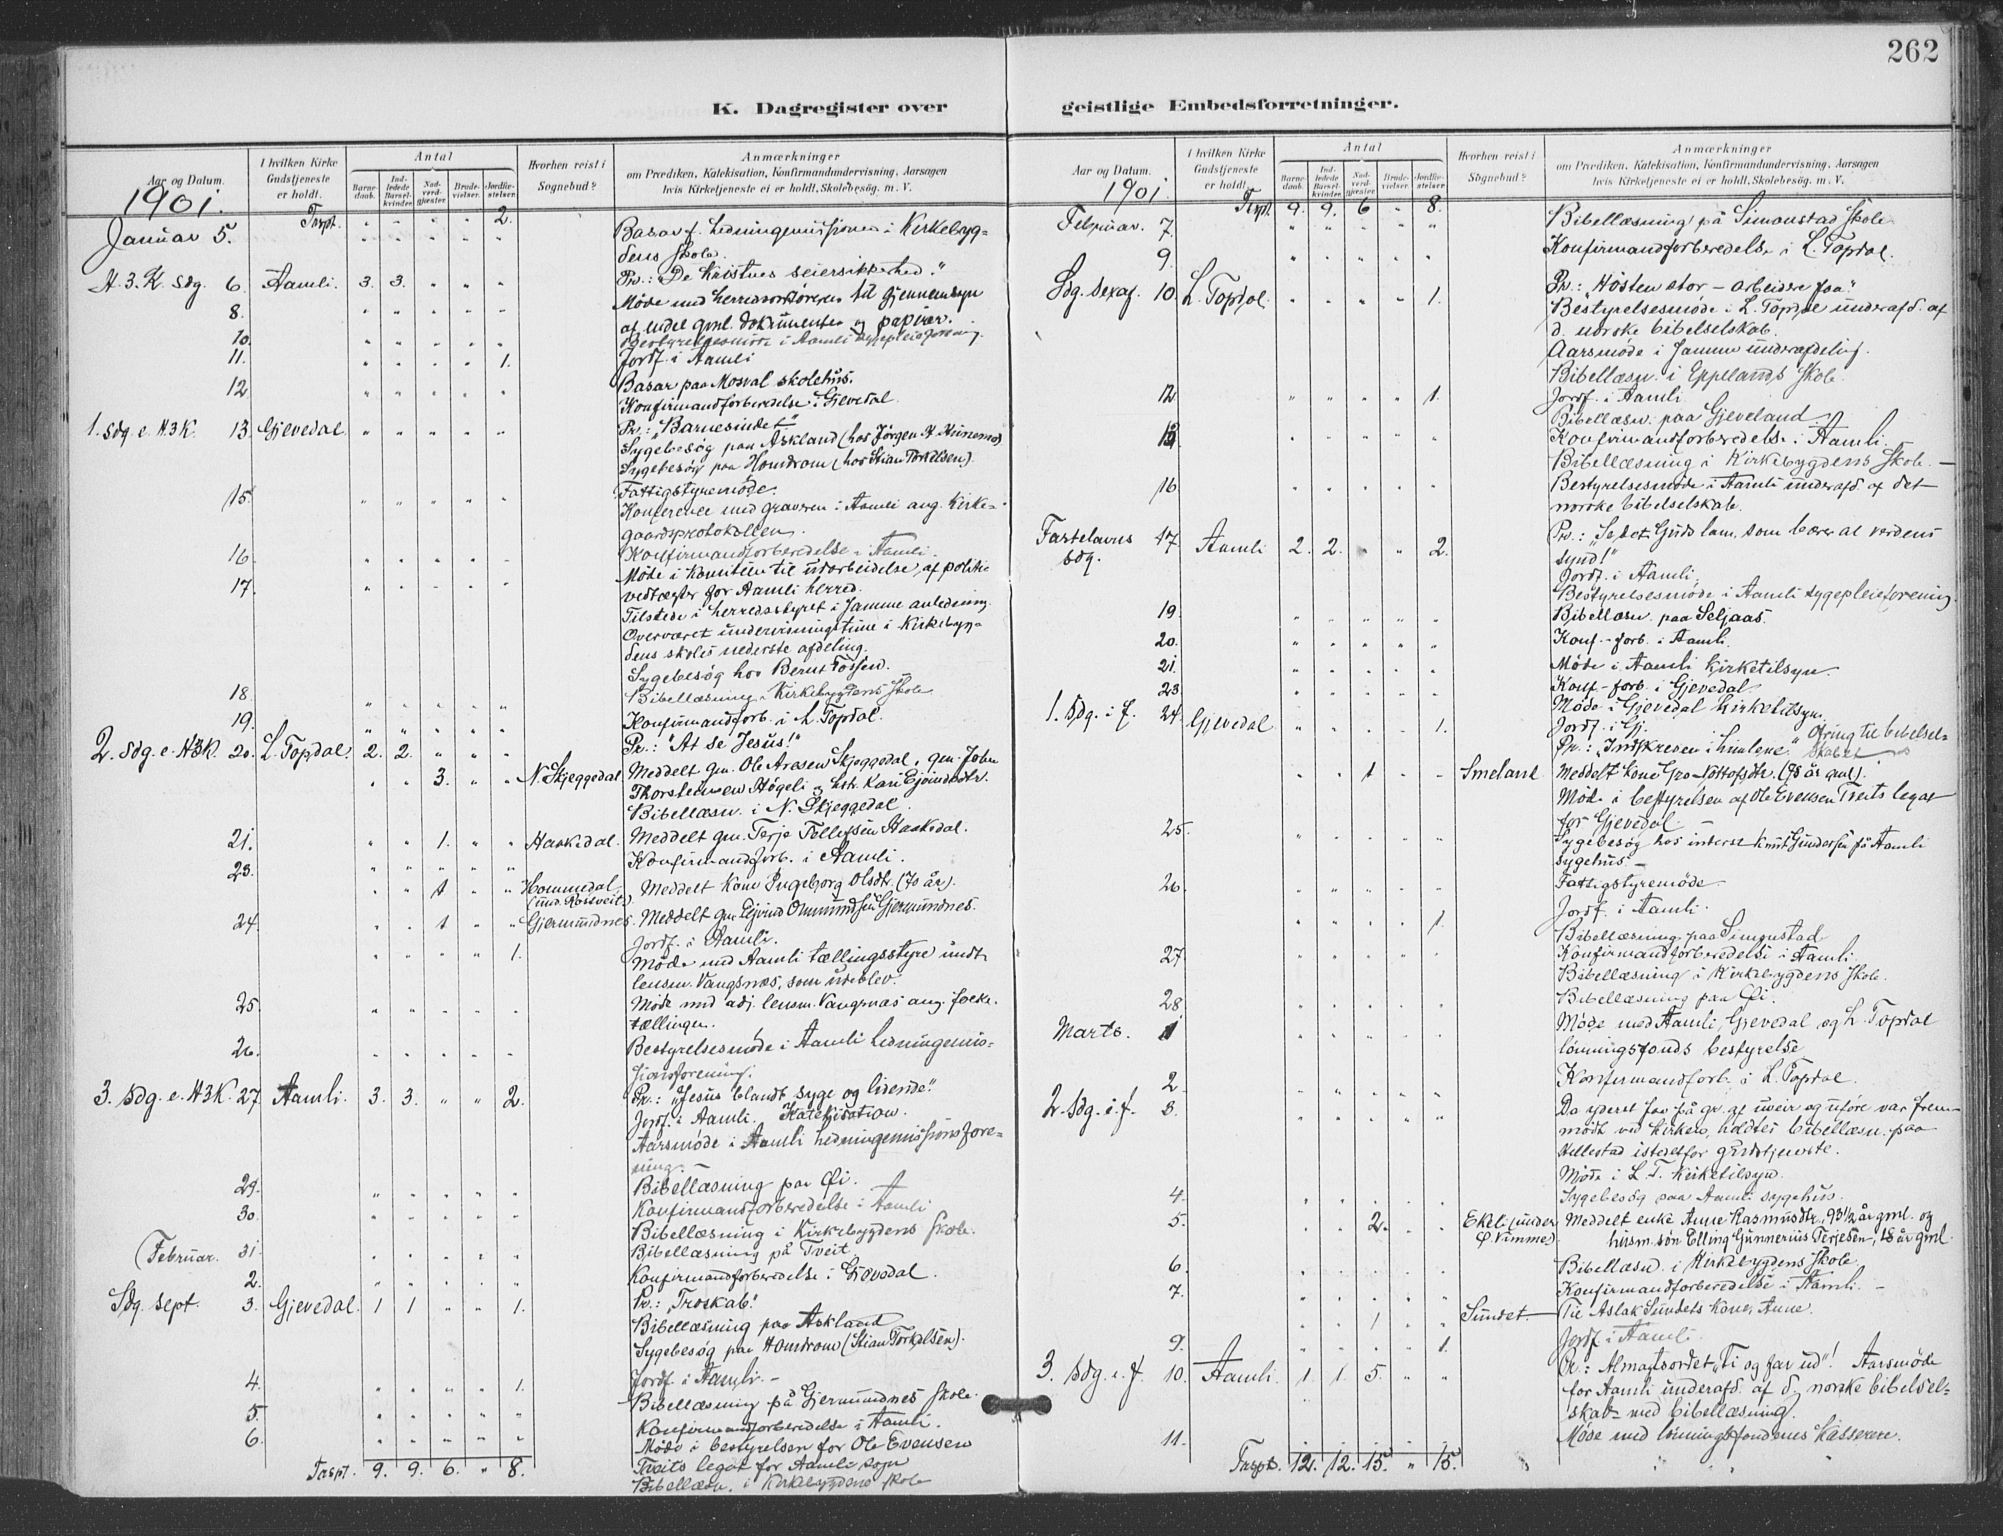 262
K. Dagregister over
Aar og Datum.
1901.
I hvilken Kirke Gudstjeneste er holdt.
Antal
Barnedaab.
Indledede Barselkvinder.
Nadverdgjæster.
Brudevielser.
Jordfæstelser
Hvorhen reist i Sognebud?
Anmærkninger
om Prædiken, Katekisation, Konfirmandundervisning, Aarsagen
hvis Kirketjeneste ei er holdt, Skolebesøg. m. V.
Trspt. " " " " 2.
Januar 5. " " " " " Basar f. Hedningemissionen i Kirkebyg-
dens Skole.
H. 3. K. Sdg. 6. Aamli. 3. 3. " " " Pr.: "De Kristnes seiersikkerhed."
8. " " " " " Møde med herredsordføreren til gjennemsyn
af endel gml. dokumenter og papirer.
10. " " " " " Bestyrelsesmøde i Aamli sygepleieforening.
11. " " " " 1. Jordf. i Aamli
Basar paa Mosval skolehus.
12 " " " " " Konfirmandforberedelse i Gjevedal.
1. Sdg. e. H3K. 13. Gjevedal. " " " " " Pr.: "Barnesindet"
Sygebesøg paa Askland (hos Jørgen H.
Sygebesøg paa Homdrom (hos Stian Torkelsen).
15. " " " " " Fattigstyremøde.
Konference med graveren i Aamli ang. Kirke-
gaardsprotokollen.
16. " " " " " Konfirmandforberedelse i Aamli.
17. " " " " " Møde i Komiteen til udarbeidelse af politi-
vedtægter for Aamli herred.
Tilstede i herredsstyret i samme anledning.
Overværet undervisningstime i Kirkebyg-
dens skoles nederste afdeling.
Sygebesøg hos Bernt Fossen.
18. " " " " " Bibellæsning i Kirkebygdens Skole
19. " " " " " Konfirmandforb. i L. Topdal.
2. Sdg. e. H3K. 20. L. Topdal. 2. 2. " " " Pr.: "At se Jesus!"
" " 3. " " N. Skjeggedal Meddelt gm. Ole Aresen Skjeggedal, gm. John
Thorstensen Høgeli og hstr. Kari Ejvindsdtr.
Bibellæsn. i N. Skjeggedal.
21. " " 1. " " Haakedal. Meddelt gm. Terje Tellefsen Haakedal.
23. " " " " " Konfirmandforb. i Aamli.
" " 1 " " Hommedal (und. Rossveit.) Meddelt Kone Ingeborg Olsdtr. (70 år).
24. " " 1 " " Gjermundnes. Meddelt gm. Ejvind Ommundsen Gjermundnes.
" " " " 1. Jordf. i Aamli.
Møde med Aamli tællingsstyre undt.
lensm. Vangsnæs, som udeblev.
25. " " " " " Møde med adj. lensm. Vangsnæs ang. folke-
tællingen.
26. " " " " " Bestyrelsesmøde i Aamli Hedningemis-
sionsforening.
3. Sdg. e. H3K. 27. Aamli. 3. 3. " " 2. Pr.: "Jesus blandt syge og lidende."
Jordf. i Aamli. Katekisation.
Aarsmøde i Aamli hedningemissionsfore-
ning. –
29. " " " " " Bibellæsning paa Øi.
30. " " " " " Konfirmandforberedelse i Aamli
Bibellæsning i Kirkebygdens Skole.
31. " " " " " Bibellæsning på Tveit.
Februar. 2. " " " " " Konfirmandforberedelse i Gjevedal.
Sdg. Sept. 3. Gjevedal. 1 1 " " 1. Pr.: "Troskab."
Bibellæsning paa Askland
Sygebesøg paa Homdrom (Stian Torkelsen).
4. " " " " 1. Jordf. i Aamli. –
Bibellæsning på Gjermundnes Skole.
5. " " " " " Konfirmandforberedelse i Aamli.
6. " " " " " Møde i bestyrelsen for Ole Evensen
Tveits legat for Aamli sogn
Trspt. 9. 9. 6. " 8. Bibellæsn. i Kirkebygdens Skole
geistlige Embedsforretninger.
Aar og Datum.
1901.
I hvilken Kirke Gudstjeneste er holdt.
Antal
Barnedaab.
Indledede Barselkvinder.
Nadverdgjæster.
Brudevielser.
Jordfæstelser
Hvorhen reist i Sognebud?
Anmærkninger
om Prædiken, Katekisation, Konfirmandundervisning, Aarsagen
hvis Kirketjeneste ei er holdt, Skolebesøg. m. V.
Trspt. 9. 9. 6 " 8.
Februar. 7. " " " " " Bibellæsning på Simonstad Skole
9. " " " " " Konfirmandforberedelse i L. Topdal.
Sdg. Sexag. 10. L. Topdal. " " " " 1. Pr.: "Høsten stor – arbeidere faa."
Bestyrelsesmøde i L. Topdal underafd. af
d. norske bibelselskab.
Aarsmøde i samme underafdeling.
Bibellæsn. i Epplands Skole.
12 " " " " 1. Jordf. i Aamli
Bibellæsn. paa Gjeveland
13. " " " " " Konfirmandforberedelse i Aamli.
Bibellæsning i Kirkebygdens Skole. –
16. " " " " " Bestyrelsesmøde i Aamli underafd. af det
norske bibelselskab.
Fastelavns sdg. 17. Aamli 2. 2. " " 2. Pr.: "Se det Guds lam, som bærer al verdens
synd!"
Jordf. i Aamli.
Bestyrelsesmøde i Aamli sygepleieforening.
19. " " " " " Bibellæsn. paa Seljaas.
20. " " " " " Konf.-forb. i Aamli.
21. " " " " " Møde i Aamli kirketilsyn.
23. " " " " " Konf-forb. i Gjevedal.
1. Sdg. i f. 24. Gjevedal " " " " 1. Møde i Gjevedal kirketilsyn.
Jordf. i Gj. Ofring til bibelsel-
skabet
" " 1 " " Smeland Meddelt kone Gro Nottofsdtr. (78 år gml.).
Møde i bestyrelsen af Ole Evensen Tveits legat
for Gjevedal –
25. " " " " " Sygebesøg hos interst Knut Gundersen på Aamli
sygehus. –
26. " " " " " Fattigstyremøde.
" " " " 1. Jordf. i Aamli.
Bibellæsning paa Simonstad
27. " " " " " Konfirmandforberedelse i Aamli.
Bibellæsning i Kirkebygdens Skole.
28 " " " " " Bibellæsning paa Øi.
Marts. 1 " " " " " Møde med Aamli, Gjevedal og L. Topdal
lønningsfonds bestyrelse
2 " " " " " Konfirmandforb. i L. Topdal.
2. Sdg. i f. 3. " " " " " Da yderst faa på gr. af uveir og uføre var frem-
mødt ved kirken, holdtes bibellæsn. paa
Hillestad istedetfor gudstjeneste.
Møde i L. T. Kirketilsyn.
4. " " " " " Sygebesøg paa Aamli sygehus.
5. " " 2. " " Ekeli (under Ø. Vimme). Meddelt enke Anne Rasmusdtr, 93½ år gml. og
husm. søn Elling Gunnerius Terjesen, 18 år gml.
6. " " " " " Bibellæsn. i Kirkebygdens Skole.
7. " " " " " Konfirmandforberedelse i Aamli. –
" " 1 " " Sundet. – Til Aslak Sundets Kone, Anne.
9. " " " " 1. Jordf. i Aamli.
3. Sdg. i f. 10. Aamli. 1. 1. 5. " " Pr.: Almagtsordet "Ti og far ud"! Aarsmøde
for Aamli underafd. af d. norske bibelsel-
skab – med bibellæsning.
11. " " " " " Møde med lønningsfondenes Kasserere.
Trspt. 12. 12. 15. " 15.